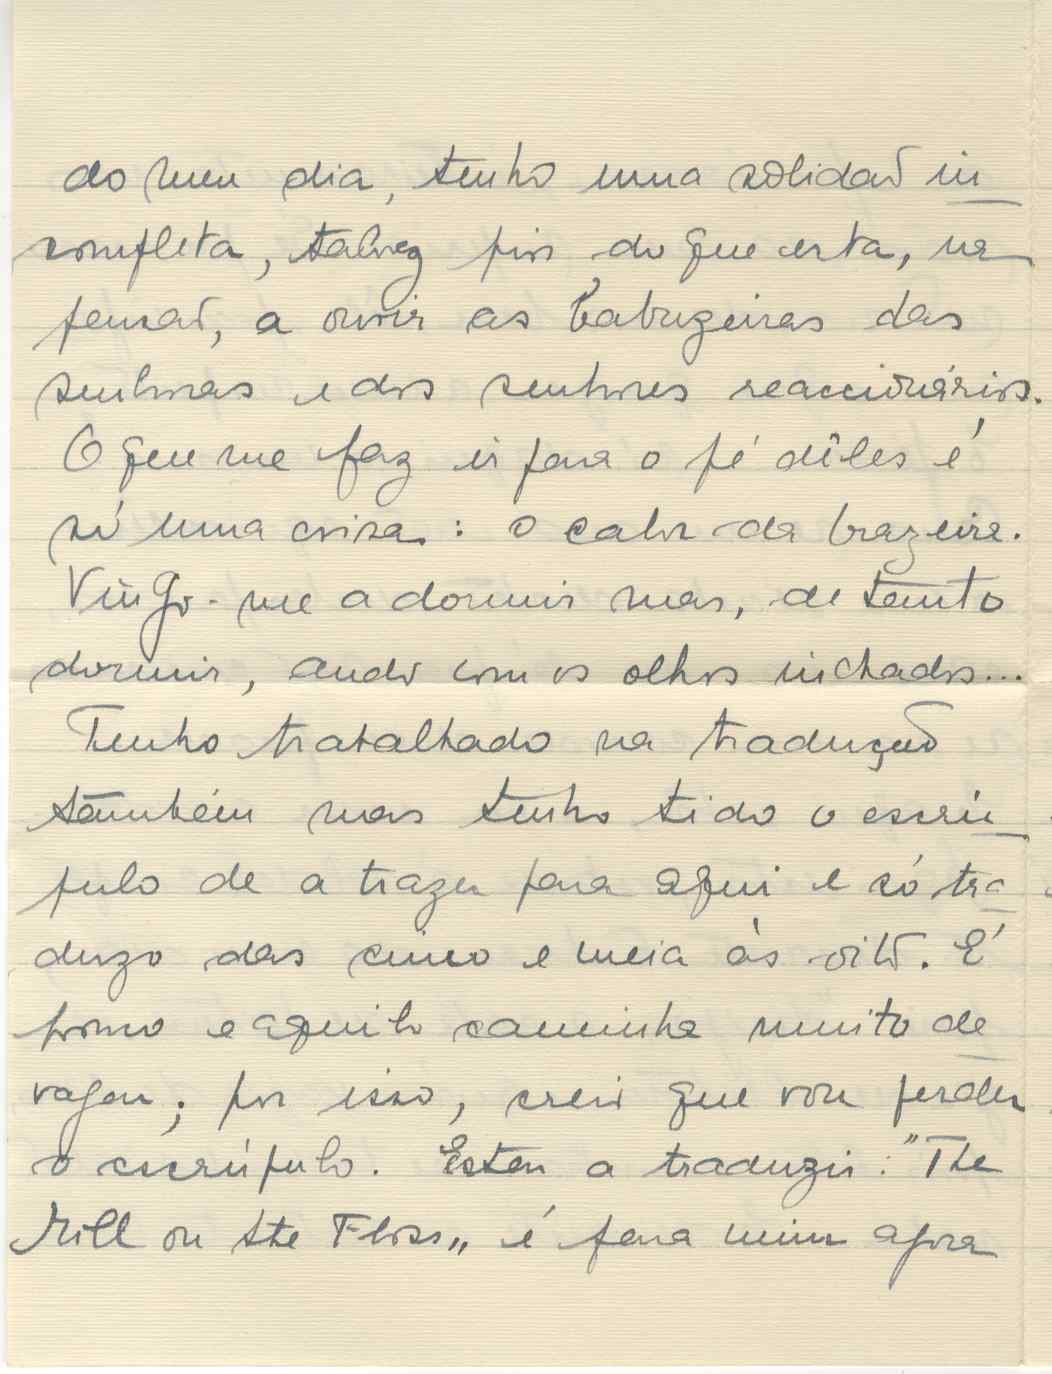 do meu dia, tenho uma solidão in
completa, talvez pior do que esta, na
pensão, a ouvir as babuzeiras das
senhoras e dos senhores reaccionários.
O que me faz ir para o pé dêles é
só uma coisa: o calor da brazeira.
Vingo-me a dormir mas, de tanto
dormir, ando com os olhos inchados...
Tenho trabalhado na tradução
também mas tenho tido o escrú
pulo de a trazer para aqui e só tra
duzo das cinco e meia às oito. É
pouco e aquilo caminha muito de
vagar; por isso, creio que vou perder
o escrúpulo. Estou a traduzir: "The
Mill on the Floss„ é para mim agora